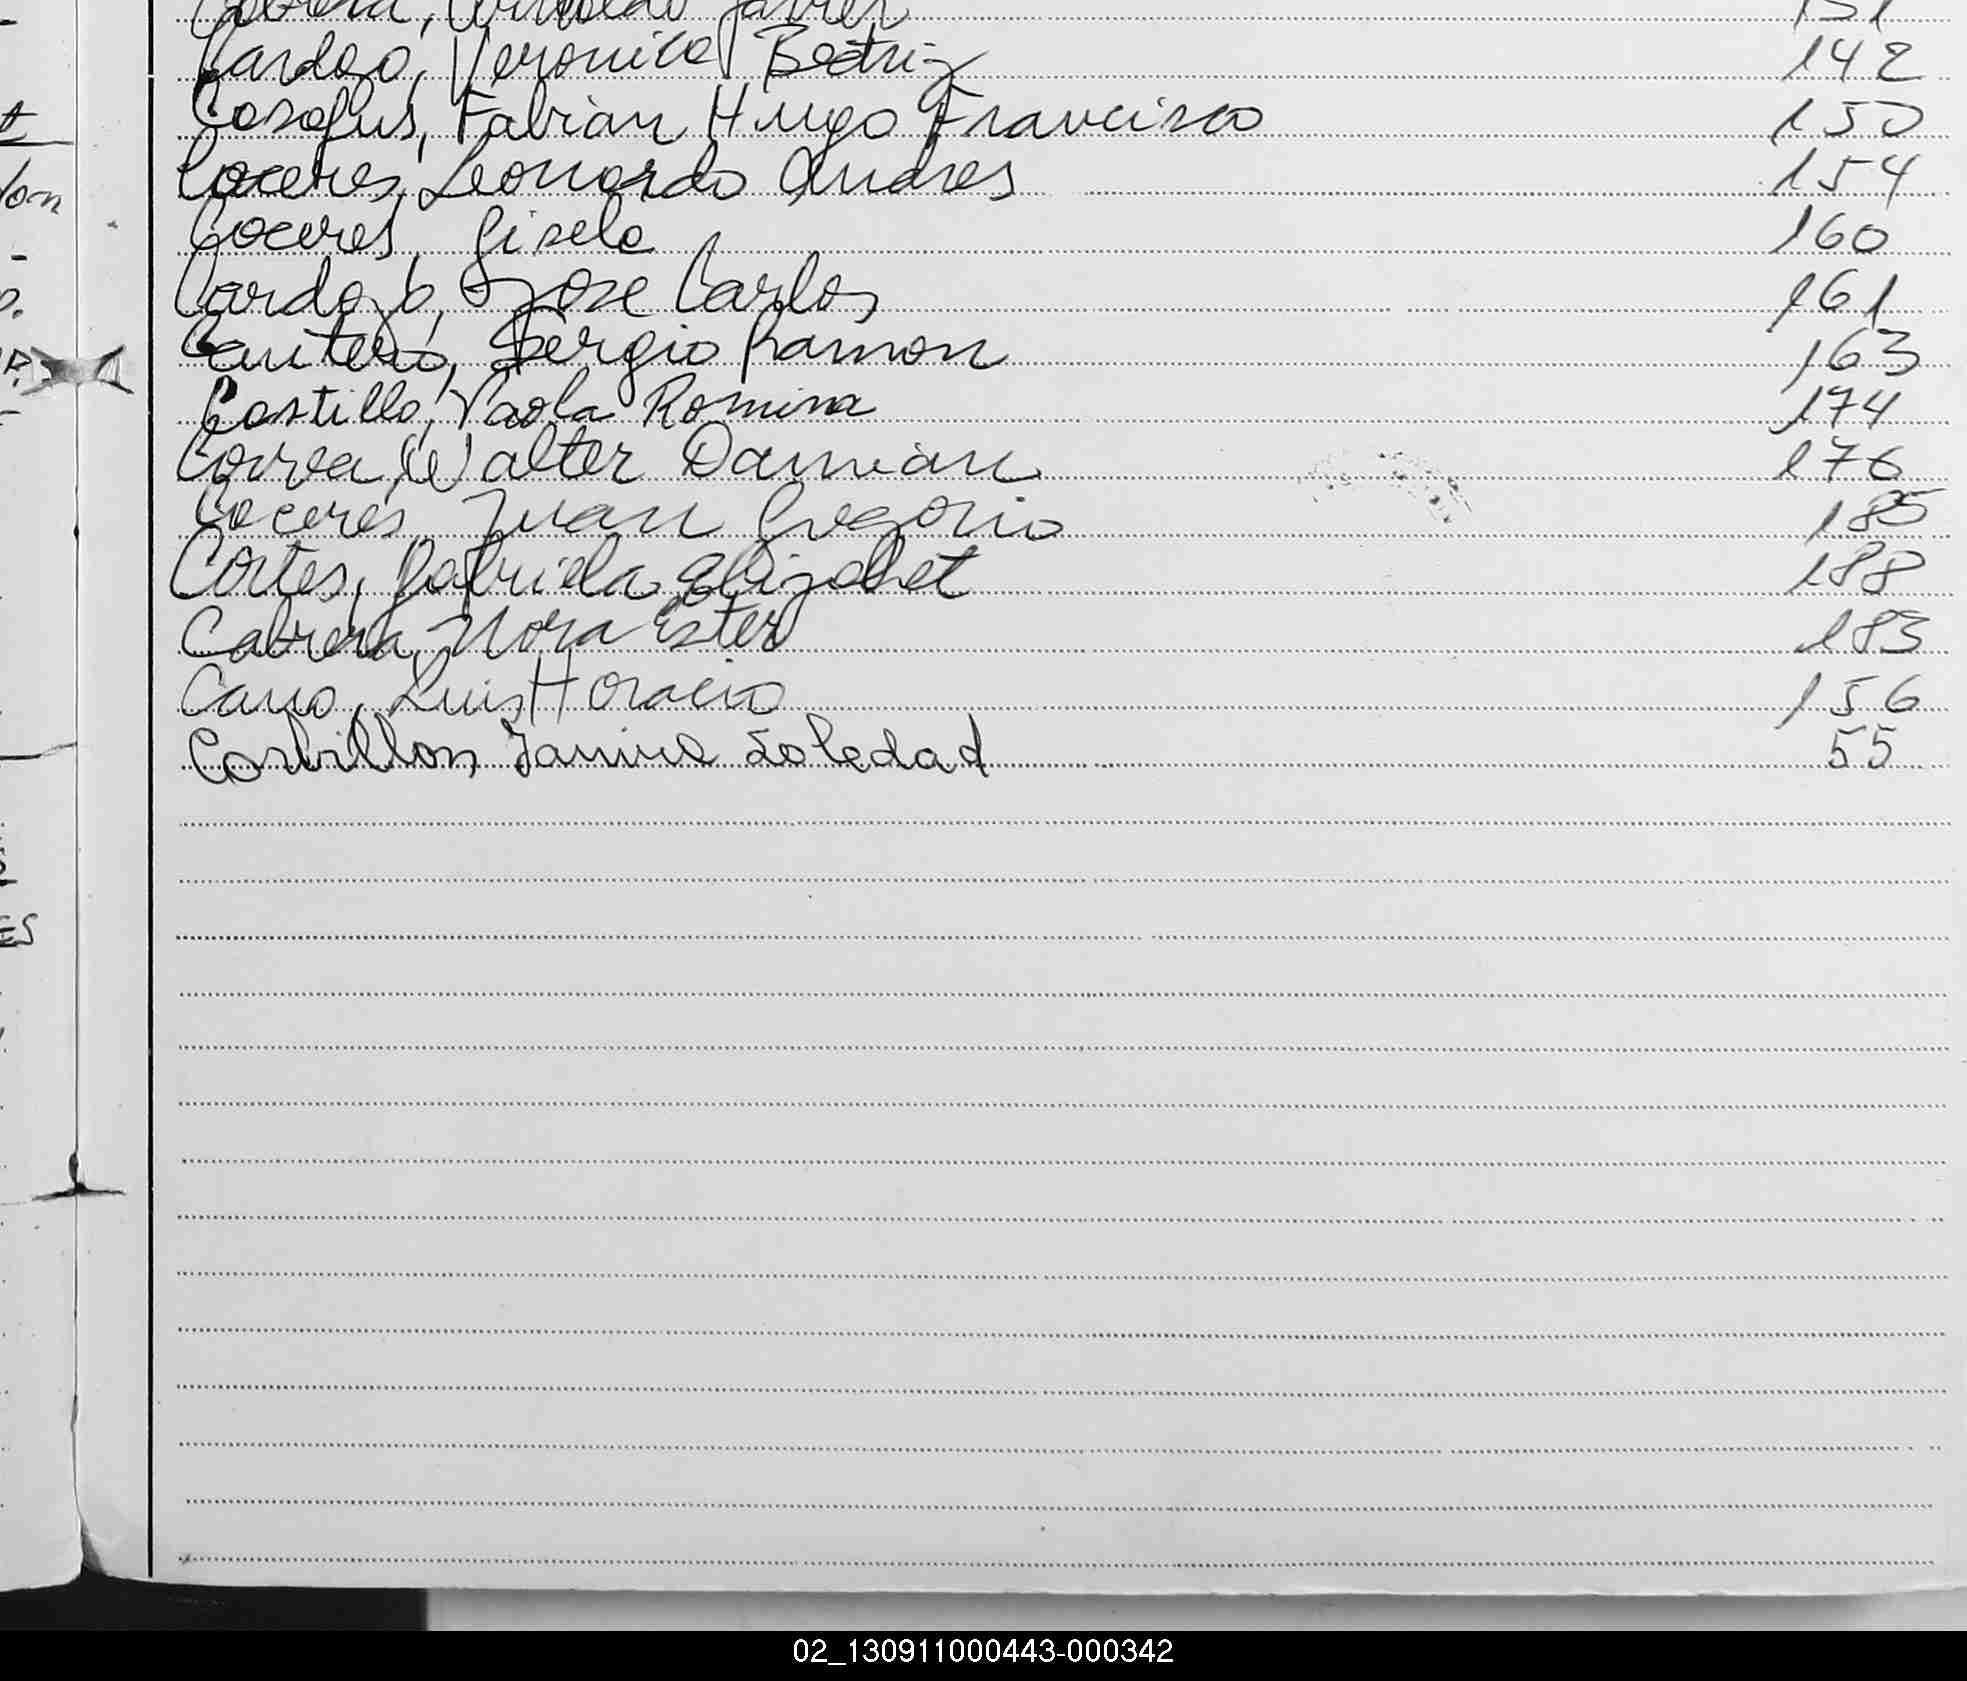 Cabrera, Arnoldo Javier 131
Cardozo, Veronica Beatriz 142
Fabian Hugo Francisco 150
Caceres, Leonardo Andres 154
Caceres, Gisela 160
Cardozo, Jose Carlos 161
Cantero, Sergio Ramon 163
Castillo, Paola Romina 174
Correa, Walter Damian 176
Caceres, Juan Gregorio 185
Cortes, Gabriela Elizabet 188
Cabrera, Nora Ester 183
Cano, Luis Horacio 156
Janina Soledad 55
02_130911000443-000342